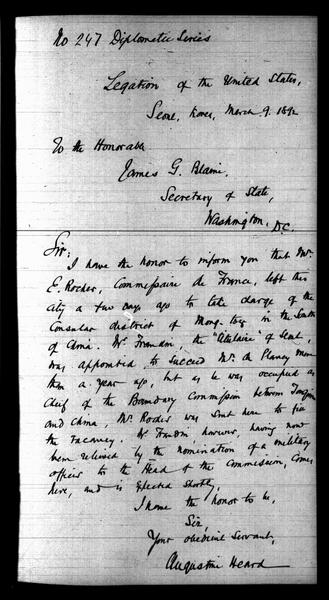 No 247 Diplomatic Series
Legation of the United States,
Seoul, Korea, March 9. 1892
To the Honorable
James G. Blaine,
Secretary of State,
Washington, D.C.
Sir:
I have the honor to inform you that Mr.
E. Rocher, Commissaire de France, left this
city a few days ago to take charge of the
Consular district of Mong-tzy in the South
of China. Mr. Frandin, the "titulaire" of Seoul,
was appointed to succeed Mr. de Plancy more
than a year ago, but as he was occupied as
Chief of the Boundary Commission between Tonquin
and China, Mr. Rocher was sent here to fill
the vacancy. Mr Frandin however, having now
been relieved by the nomination of a military
officer to the Head of the Commission, comes
here, and is expected shortly.
I have the honor to be,
Sir,
Your obedient servant,
Augustine Heard